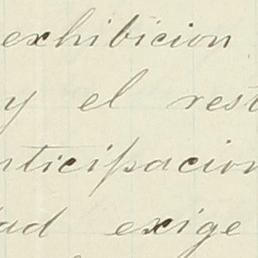 exhibicion
y el rest
nticipacion
dad exige